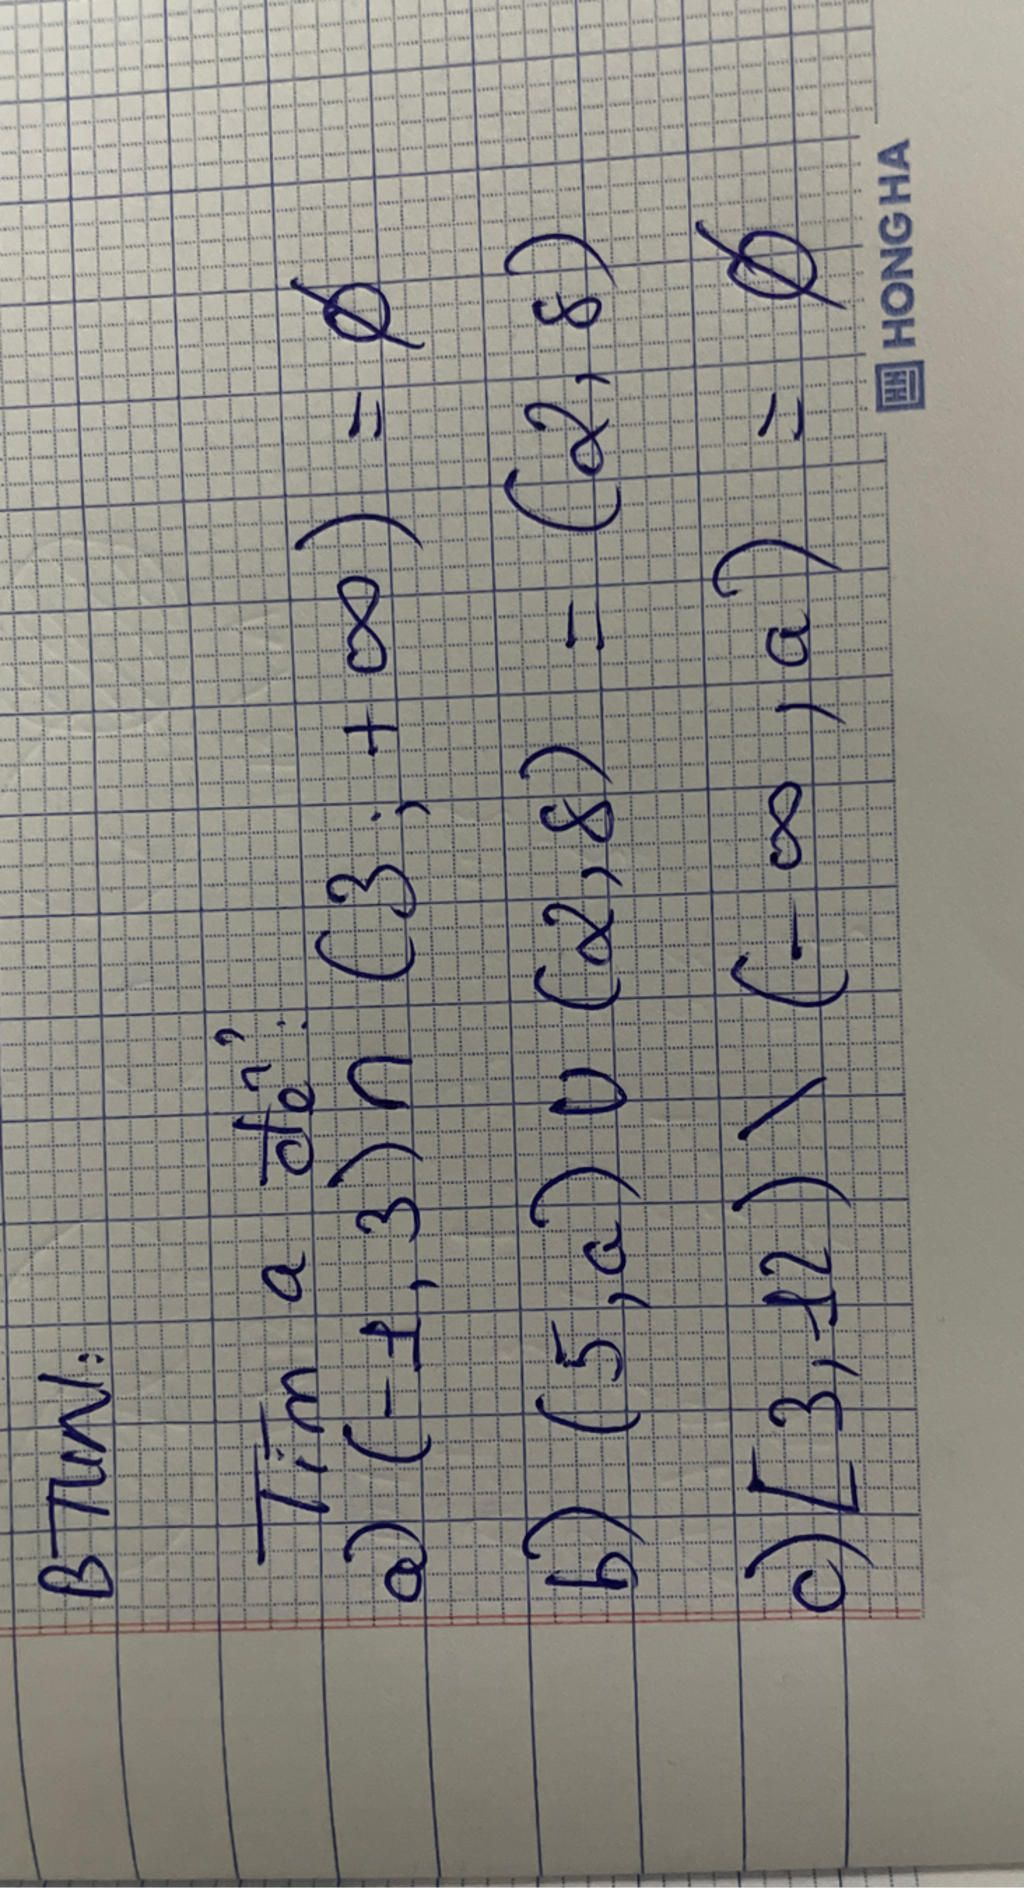 BTVN:
Tìm a để:
a) (-1,3) ∩ (3; +∞) = Ø
b) (5,a) ∪ (2,8) = (2,8)
c) [3,12) \ (-∞,a) = Ø
HONGHA